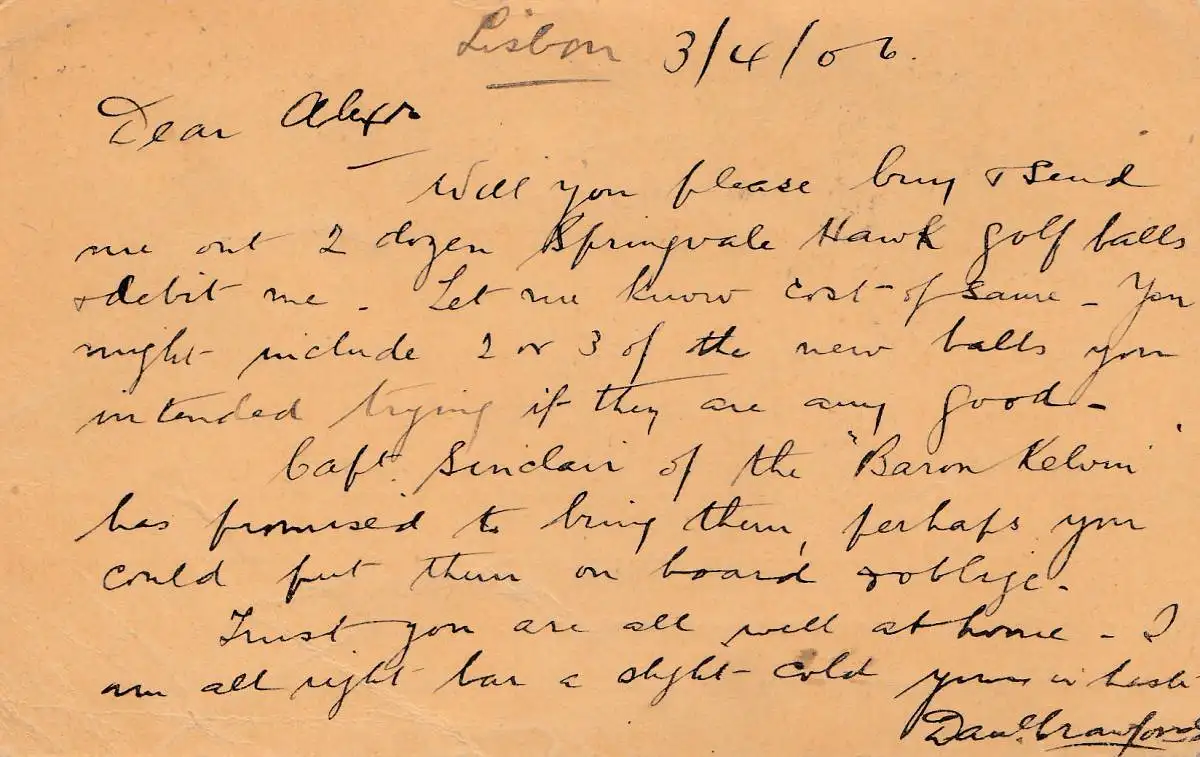 Lisbon 3/4/06.
Dear Alexr
Will you please buy & send
me out 2 dozen Springvale Hawk golf balls
& debit me - Let me know cost of same - You
might include 2 or 3 of the new balls you
intended trying if they are any good -
Capt. Sinclair of the "Baron Kelvin"
has promised to bring them, perhaps you
could put them on board & oblige -
Trust you are all well at home - I
am all right bar a slight cold yours in haste
Danl. Crawford